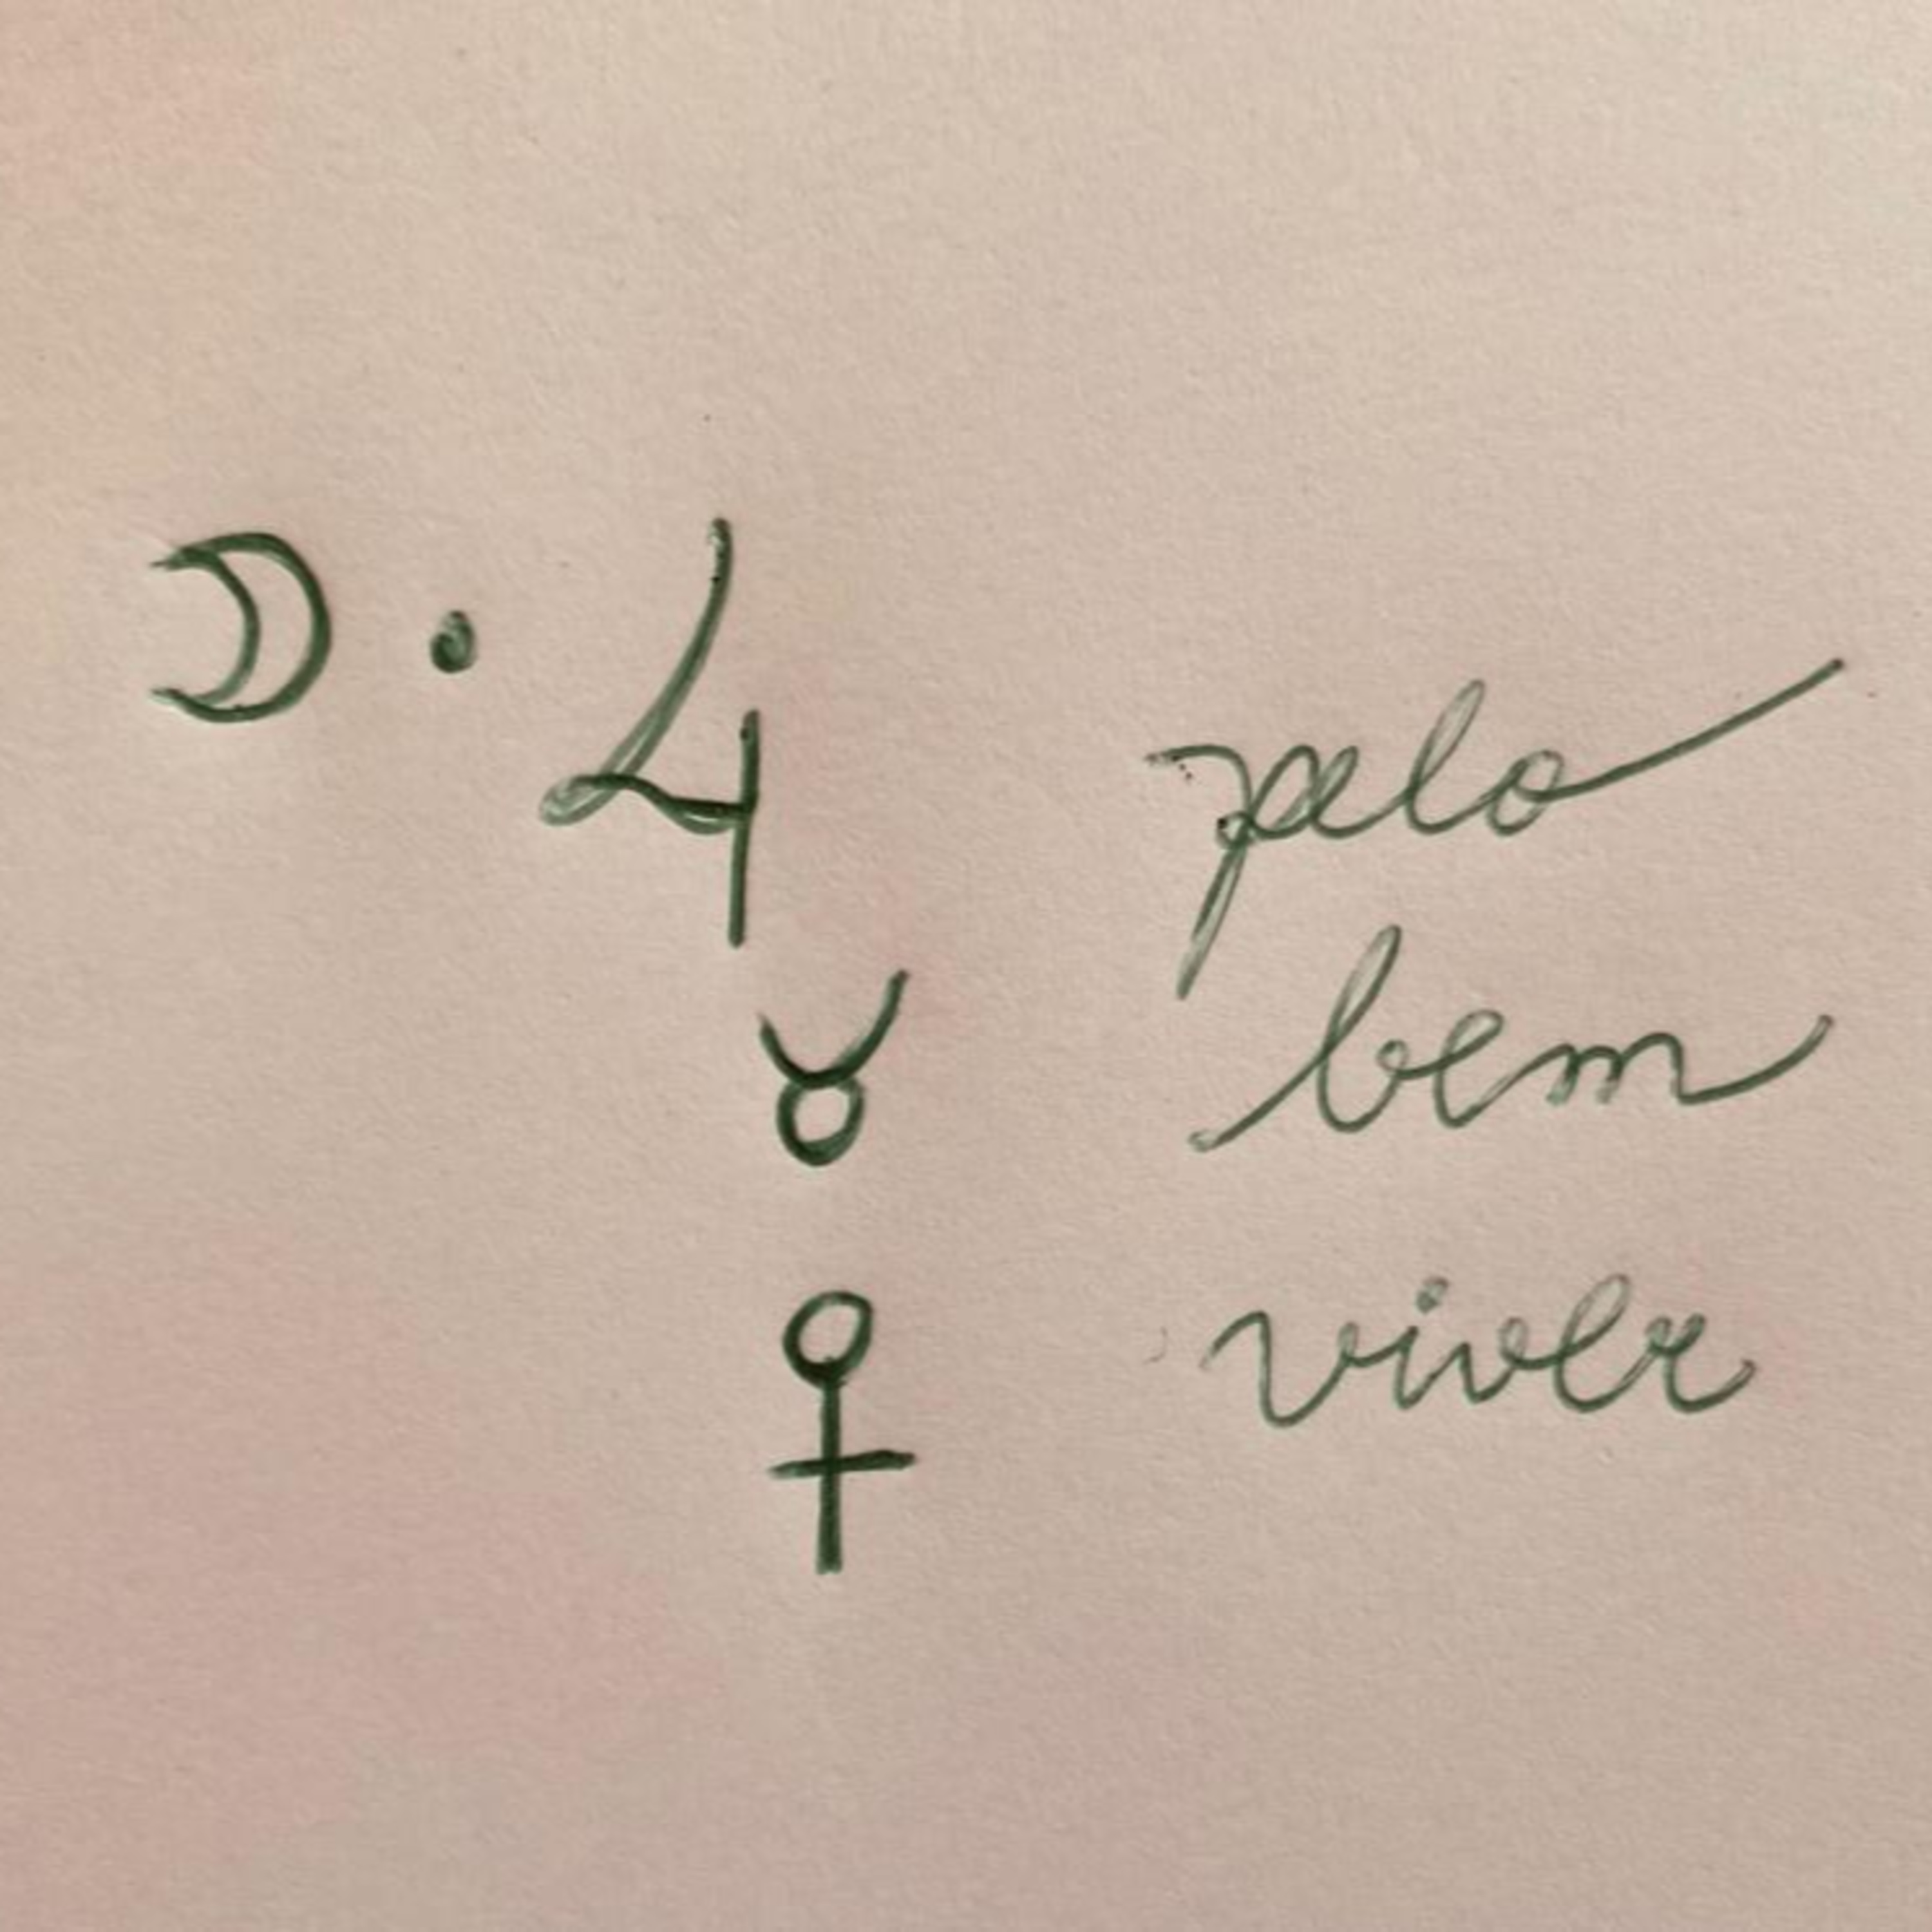 ☽ • ♃
pelo
bem
♉
viver
♀